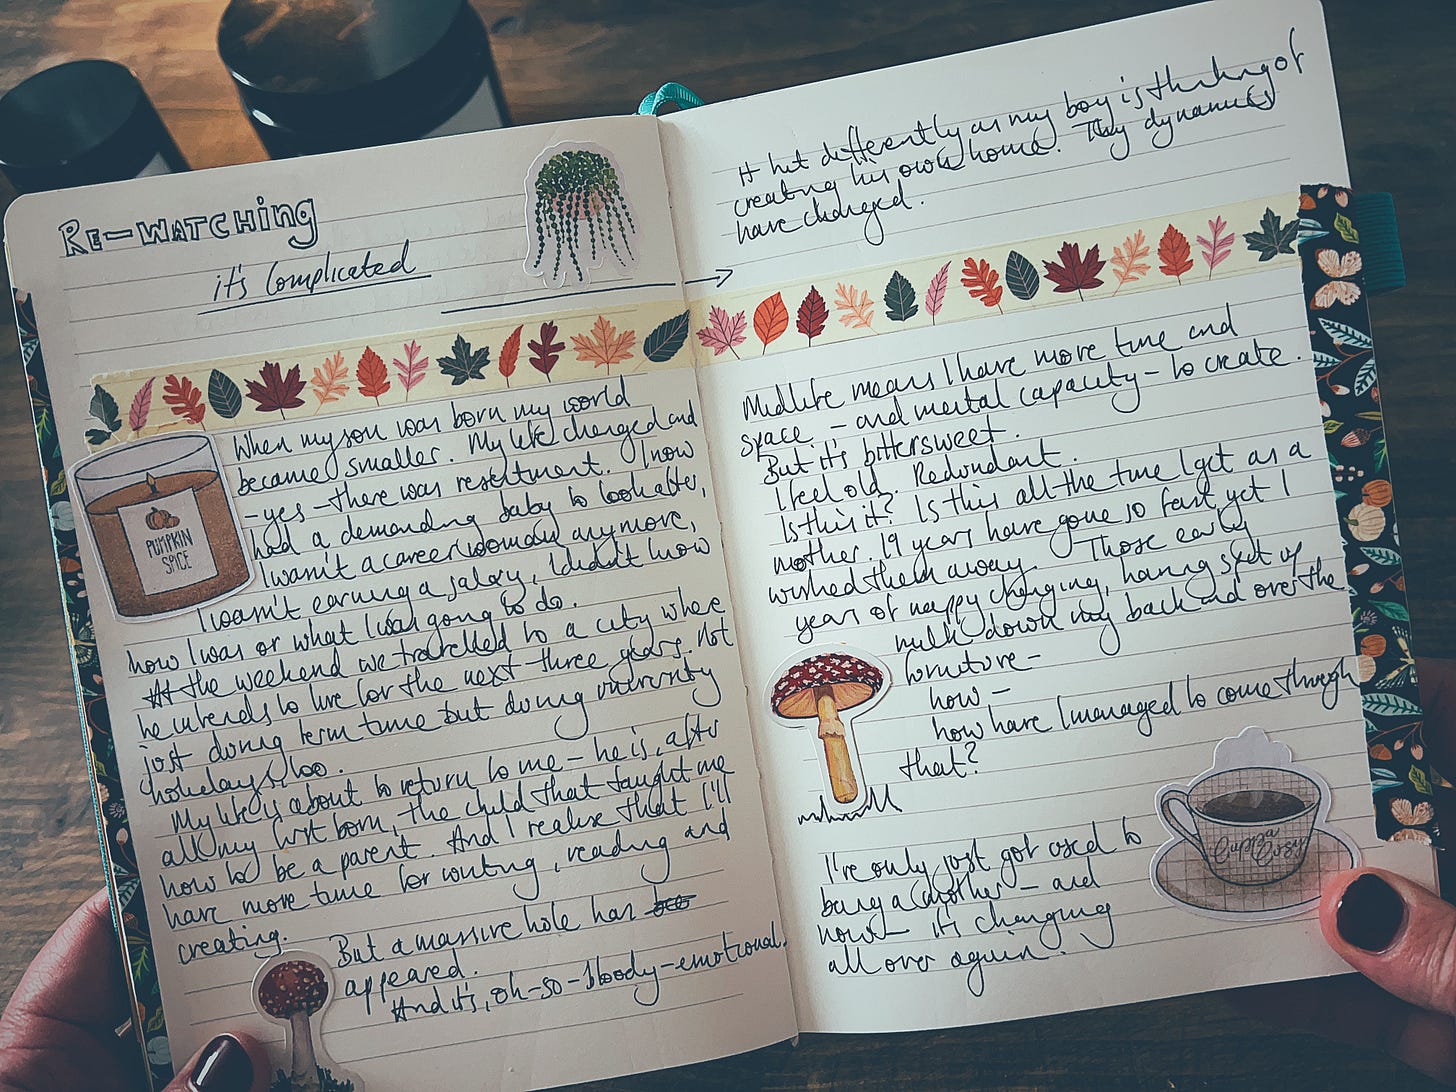 Re-watching
it's complicated
When my son was born my world
became smaller. My life changed and
- yes - there was resentment. I now
had a demanding baby to look after,
I wasn't a career woman anymore,
I wasn't earning a salary, I didn't know
how I was or what I was going to do.
At the weekend we travelled to a city where
he intends to live for the next three years. Not
just during term time but during university
holidays, too.
My life is about to return to me - he is, after
all, my first born, the child that taught me
how to be a parent. And I realise that I'll
have more time for writing, reading and
creating.
But a massive hole has
appeared.
And it's, oh-so-bloody-emotional.
PUMPKIN
SPICE
It hit differently as my boy is thinking of
creating his own home. They dynamics
have changed.
Midlife means I have more time and
space - and mental capacity - to create.
But it's bittersweet.
I feel old. Redundant.
Is this it? Is this all the time I get as a
mother. 19 years have gone so fast yet I
wished them away. Those early
years of nappy changing, having spet up
milk down my back and over the
furniture -
how -
how have I managed to come through
that?
I've only just got used to
being a mother - and
now - it's changing
all over again.
Cuppa
Cosy